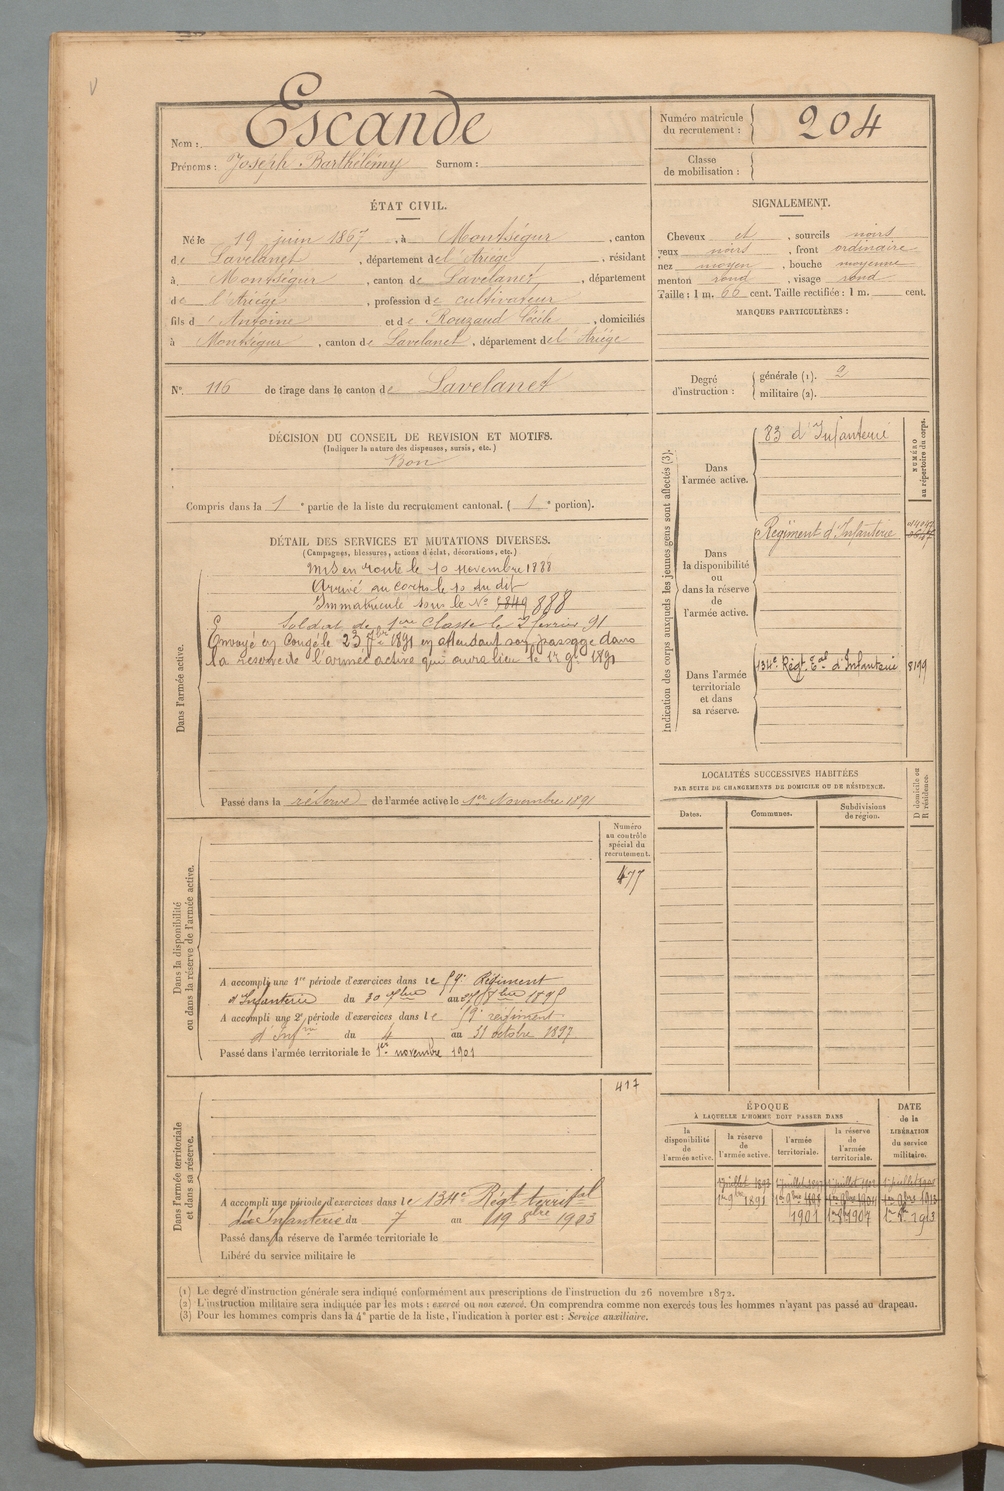 Nom : Escande
Prénoms : Joseph Barthélémy Surnom :
Numéro matricule
du recrutement : 204
Classe
de mobilisation :
ÉTAT CIVIL.
Né le 19 juin 1867, à Montségur, canton
de Lavelanet, département de l'Ariège, résidant
à Montségur, canton de Lavelanet, département
de l'Ariège, profession de cultivateur
fils d'Antoine et de Rouzaud Cécile, domiciliés
à Montségur, canton de Lavelanet, département de l'Ariège
SIGNALEMENT.
Cheveux et, sourcils noirs
yeux noirs, front ordinaire
nez moyen, bouche moyenne
menton rond, visage rond
Taille : 1 m. 66 cent. Taille rectifiée : 1 m. cent.
MARQUES PARTICULIÈRES :
N° 116 de tirage dans le canton de Lavelanet
Degré
d'instruction :
générale (1). 2
militaire (2).
DÉCISION DU CONSEIL DE REVISION ET MOTIFS.
(Indiquer la nature des dispenses, sursis, etc.)
Bon
Compris dans la 1e partie de la liste du recrutement cantonal. ( 1e portion).
DÉTAIL DES SERVICES ET MUTATIONS DIVERSES.
(Campagnes, blessures, actions d'éclat, décorations, etc.)
Dans l'armée active.
Mis en route le 10 novembre 1888
Arrivé au corps le 10 du dit
Immatriculé sous le N° 888
Soldat de 1ère classe le 2 février 91
Envoyé en congé le 23 7bre 1891 en attendant son passage dans
la réserve de l'armée active qui aura lieu le 1er 9bre 1891
Passé dans la réserve de l'armée active le 1er Novembre 1891
Indication des corps auxquels les jeunes gens sont affectés (3).
NUMÉRO
au répertoire du corps.
Dans
l'armée active.
83 d'Infanterie
Dans
la disponibilité
ou
dans la réserve
de
l'armée active.
Régiment d'Infanterie
Dans l'armée
territoriale
et dans
sa réserve.
134e Régt Eal d'Infanterie 8199
LOCALITÉS SUCCESSIVES HABITÉES
PAR SUITE DE CHANGEMENTS DE DOMICILE OU DE RÉSIDENCE.
Dates.
Communes.
Subdivisions
de région.
D domicile ou
R résidence.
Dans la disponibilité
ou dans la réserve de l'armée active.
Numéro
au contrôle
spécial du
recrutement.
477
A accompli une 1re période d'exercices dans le 59e Régiment
d'Infanterie du 30 au 1895
A accompli une 2e période d'exercices dans le 59e régiment
d'Infrie du 4 au 31 octobre 1897
Passé dans l'armée territoriale le 1er novembre 1901
Dans l'armée territoriale
et dans sa réserve.
417
A accompli une période d'exercices dans le 134e Régt territal
d'Infanterie du 7 au 19 8bre 1903
Passé dans la réserve de l'armée territoriale le
Libéré du service militaire le
ÉPOQUE
À LAQUELLE L'HOMME DOIT PASSER DANS
la
disponibilité
de
l'armée active.
la réserve
de
l'armée active.
l'armée
territoriale.
la réserve
de
l'armée
territoriale.
DATE
de la
LIBÉRATION
du service
militaire.
1er 9bre 1891
1901 1er 8bre 1907 1er 8bre 1913
(1) Le degré d'instruction générale sera indiqué conformément aux prescriptions de l'instruction du 26 novembre 1872.
(2) L'instruction militaire sera indiquée par les mots : exercé ou non exercé. On comprendra comme non exercés tous les hommes n'ayant pas passé au drapeau.
(3) Pour les hommes compris dans la 4e partie de la liste, l'indication à porter est : Service auxiliaire.